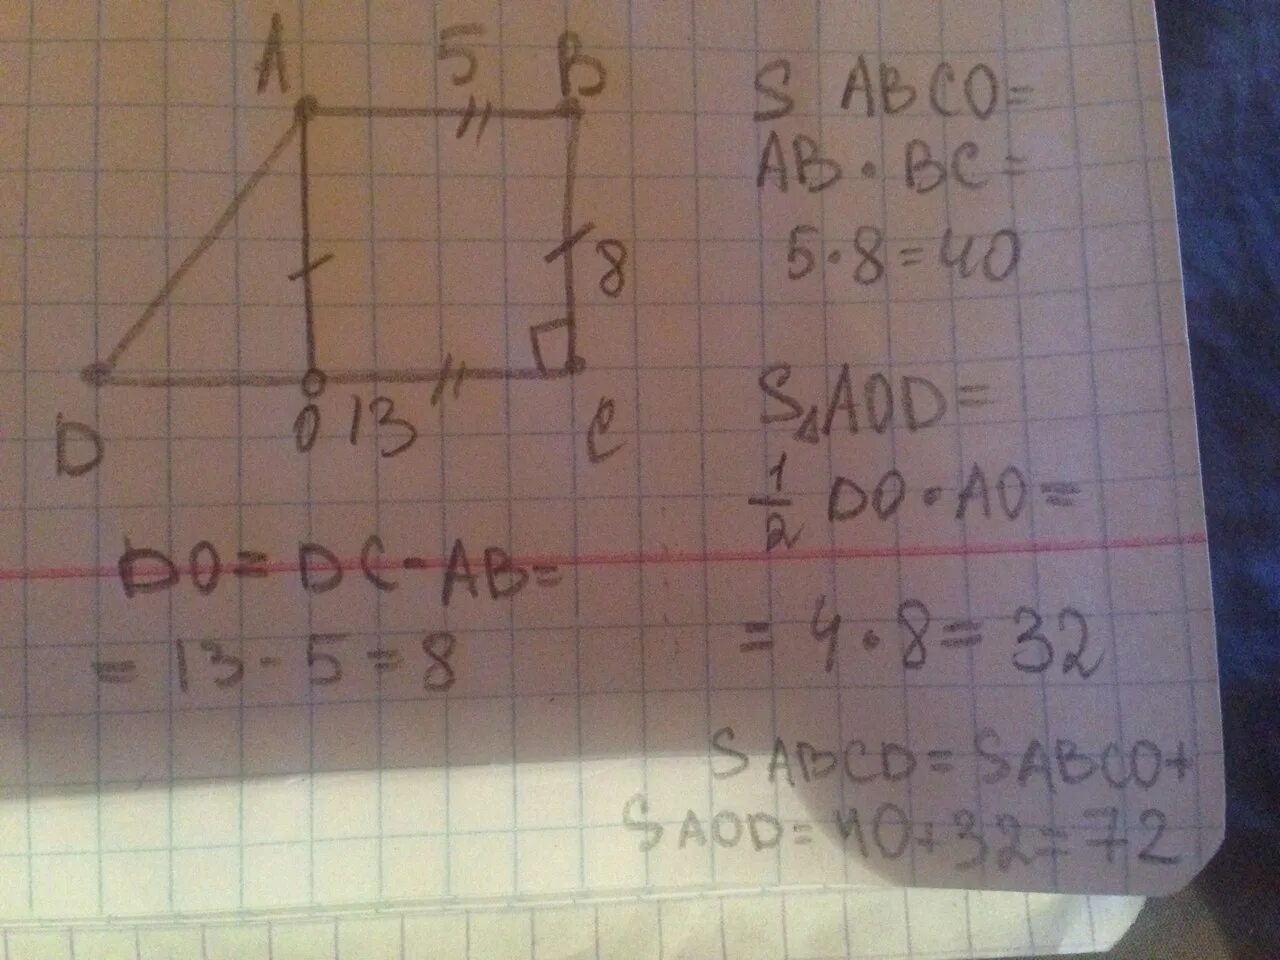 A 5 B
8
D O 13 C
DO = DC - AB =
= 13 - 5 = 8
S ABCO =
AB · BC =
5 · 8 = 40
S△AOD =
1/2 DO · AO =
= 4 · 8 = 32
S ABCD = S ABCO +
S AOD = 40 + 32 = 72